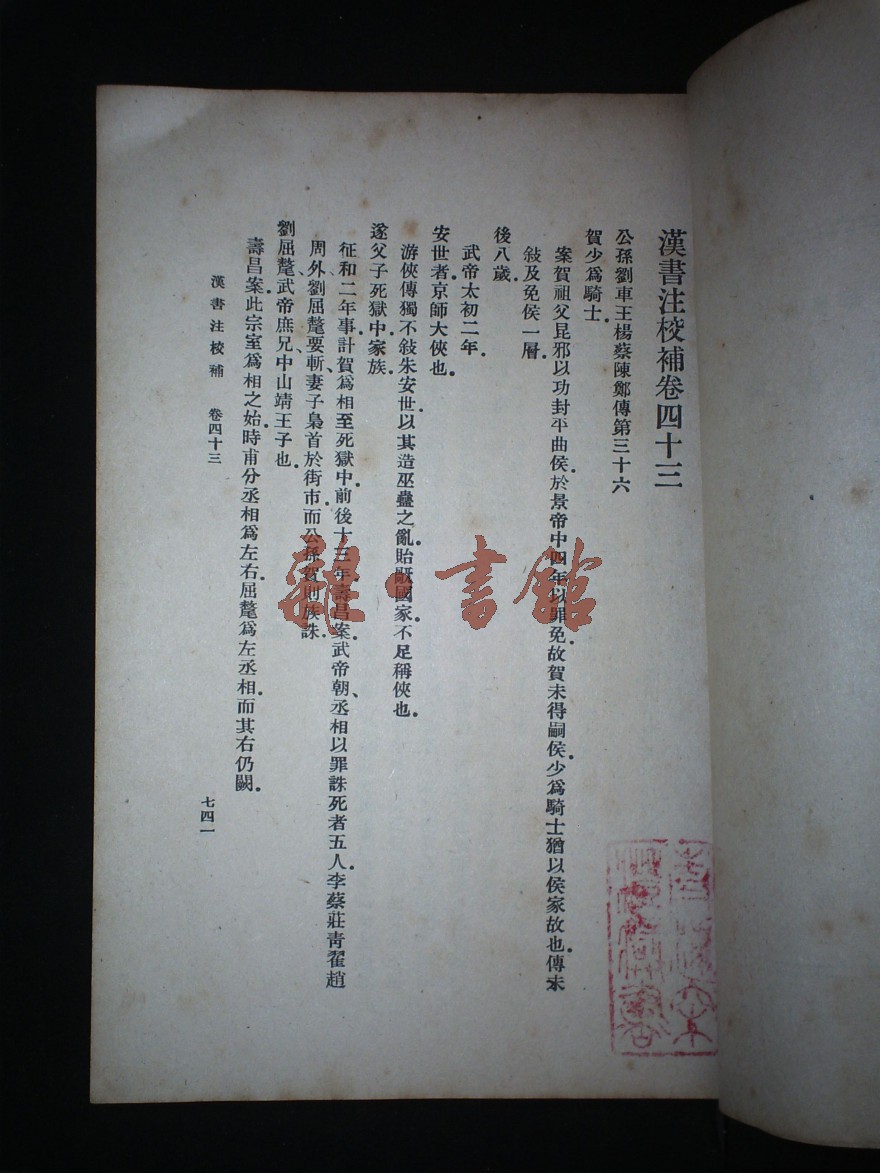 漢書注校補卷四十三
公孫劉車王楊蔡陳鄭傳第三十六
賀少爲騎士。
案賀祖父昆邪以功封平曲侯。於景帝中四年以罪免。故賀未得嗣侯。少爲騎士猶以侯家故也。傳未
敍及免侯一層。
後八歲。
武帝太初二年。
安世者京師大俠也。
游俠傳獨不敍朱安世。以其造巫蠱之亂。貽敃國家。不足稱俠也。
遂父子死獄中家族。
征和二年事。計賀爲相至死獄中。前後十三年。壽昌案。武帝朝、丞相以罪誅死者五人。李蔡、莊靑翟、趙
周外、劉屈氂要斬、妻子梟首於街市。而公孫賀則族誅。
劉屈氂、武帝庶兄、中山靖王子也。
壽昌案。此宗室爲相之始。時甫分丞相爲左右。屈氂爲左丞相。而其右仍闕。
漢書注校補　卷四十三
七四一
龍·書館